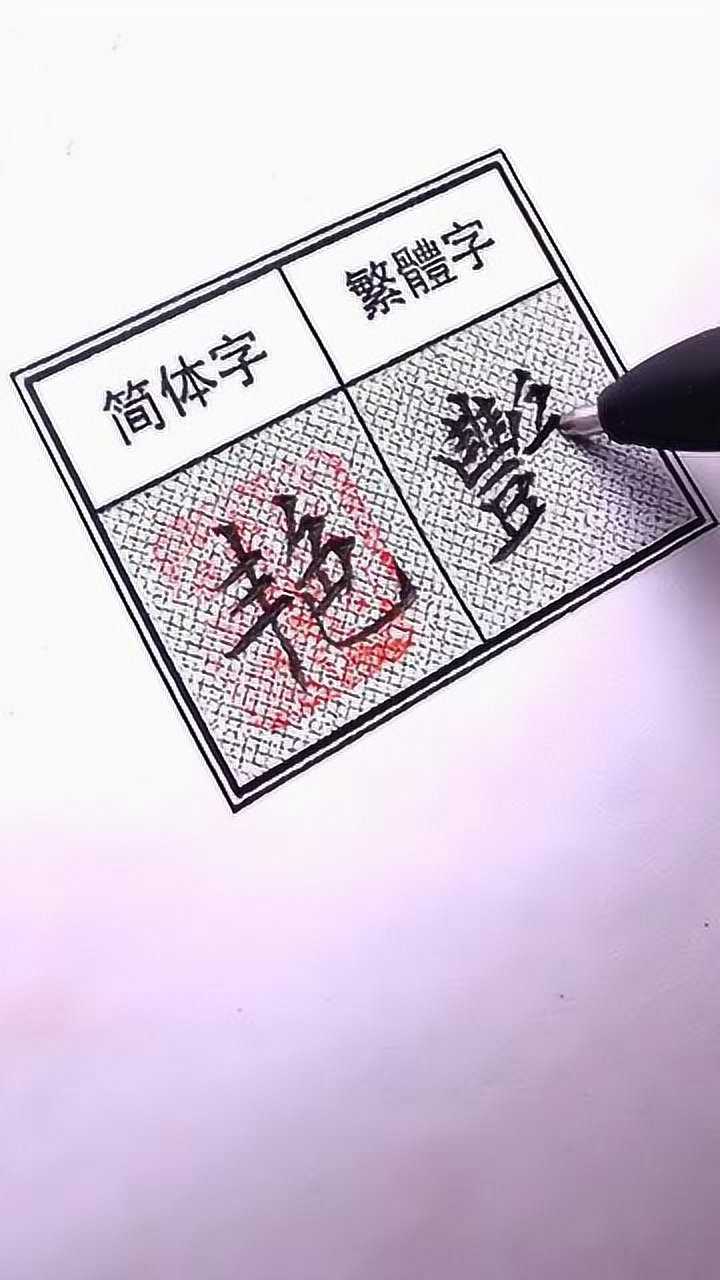 简体字 繁體字
艳